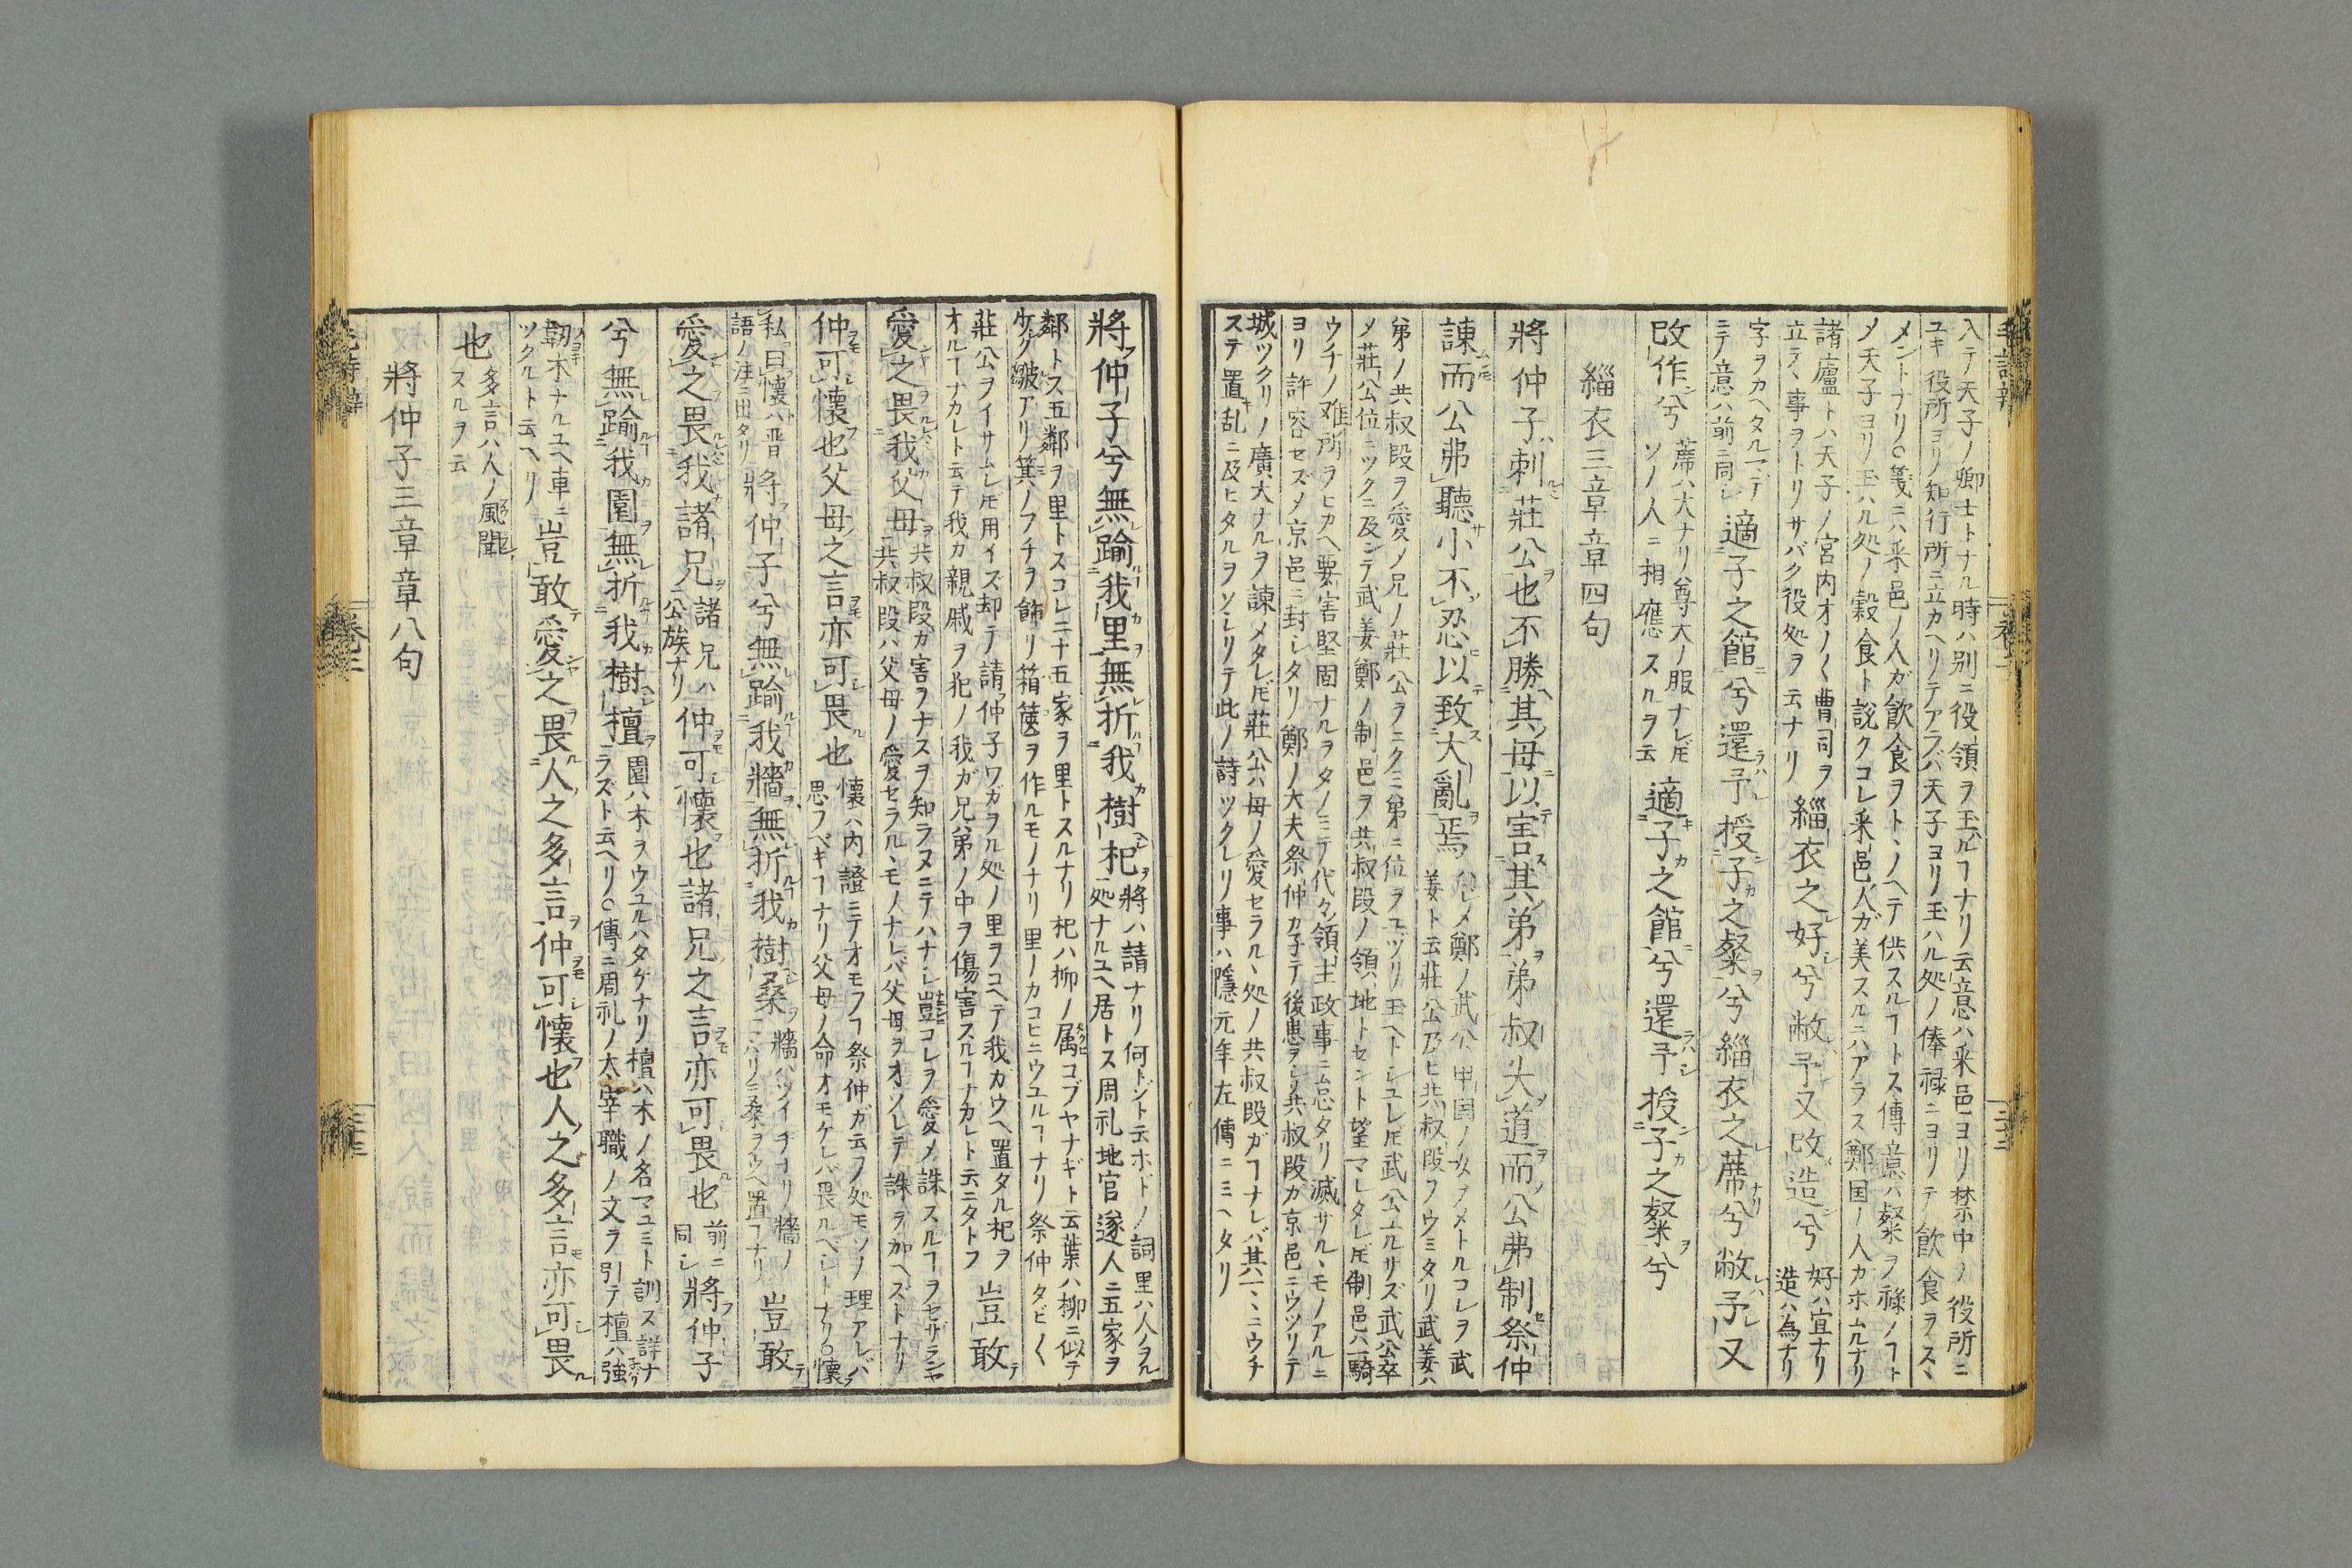 入テ天子ノ卿士トナル時ハ別ニ役領ヲ玉ハルヿナリ云意ハ采邑ヨリノ禁中ノ役所ニ
ユキ役所ヨリノ知行所ニ立カヘリテアラバ天子ヨリ玉ハル処ノ俸禄ニヨリテ飲食ヲスヽ
メントナリ○箋ニハ采邑ノ人ガ飲食ヲトヽノヘテ供スルヿトス傳意ハ粲ヲ祿ノヿト
〆天子ヨリ玉ハル処ノ穀食ト説クコレ采邑人ガ美スルニハアラス鄭国ノ人カホムルナリ
諸廬トハ天子ノ宮内オノ〱曹司ヲ
立テヽ事ヲトリサバク役処ヲ云ナリ
緇衣之好兮敝予又改造兮
好ハ宜ナリ
造ハ為ナリ
字ヲカヘタルマデ
ニテ意ハ前ニ同レ
適子之館兮還予授子之粲兮緇衣之蓆兮敝予又
改作兮
蓆ハ大ナリ尊大ノ服ナレ𪜈
ソノ人ニ相應スルヲ云
適子之館兮還予授子之粲兮
緇衣三章章四句
將仲子刺莊公也不勝其母以害其弟弟叔失道而公弗制祭仲
諫而公弗聽小不忍以致大亂焉
鄭ノ武公申国ノ女ヲメトルコレヲ武
姜ト云莊公乃ヒ共叔段ヲウミタリ武姜ハ
弟ノ共叔段ヲ愛〆兄ノ莊公ヲニクミ弟ニ位ヲユヅリ玉ヘトレユレ𪜈武公ユルサズ武公卒
〆莊公位ニツクニ及ンテ武姜鄭ノ制邑ヲ共叔段ノ領地トセント望マレタレ𪜈制邑ハ一騎
ウチノ难所ヲヒカヘ要害堅固ナルヲタノミテ代々領主政事ニ怠タリ滅サルヽモノアルニ
ヨリ許容セズ〆京邑ニ封レタリ鄭ノ大夫祭仲カ子テ後患ヲシリ共叔段ガ京邑ニウツリテ
城ツクリノ廣大ナルヲ諫〆タレ𪜈莊公ハ母ノ愛セラルヽ処ノ共叔段ガヿナレバ其マヽニウチ
ステ置キ乱ニ及ヒタルヲソシリテ此ノ詩ツクレリ事ハ隱元年左傳ニミヘタリ
將仲子兮無踰我里無折我樹杞
將ハ請ナリ何トゾト云ホドノ詞里ハ人ノヲル
処ナルユヘ居トス周礼地官遂人ニ五家ヲ
鄰トス五鄰ヲ里トスコレ二十五家ヲ里トスルナリ杞ハ柳ノ属コブヤナギト云葉ハ柳ニ似テ
ケク皺アリ箕ノフチヲ飾リ箱篋ヲ作ルモノナリ里ノカコヒニウユルヿナリ祭仲タビ〱
莊公ヲイサムレ𪜈用イズ却テ請フ仲子ワガヲル処ノ里ヲコヘテ我ガウヘ置タル杞ヲ
オルヿナカレト云テ我カ親戚ヲ犯ノ我ガ兄弟ノ中ヲ傷害スルヿナカレト云ニタトフ
豈敢
愛之畏我父母
共叔段ガ害ヲナスヲ知ラヌニテハナシ豈コレヲ愛〆誅スルヿヲセザランヤ
共叔段ハ父母ノ愛セラルヽモノナレバ父母ヲオソレテ誅ヲ加ヘズトナリ
仲可懷也父母之言亦可畏也
懷ハ内證ニテオモフヿ祭仲ガ云フ処モソノ理アレバ
思フベキヿナリ父母ノ命オモケレバ畏ルベシトナリ○懷
私曰懷ハ晋
語ノ注ニ出タリ
將仲子兮無踰我牆無折我樹桑
牆ハツイヂナリ牆ノ
豈敢
愛之畏我諸兄
諸兄ハ
公族ナリ
仲可懷也諸兄之言亦可畏也
前ニ
同レ
將仲子
兮無踰我園無折我樹檀
園ハ木ヲウユルハタケナリ檀ハ木ノ名マユミト訓ス詳ナ
ラズト云ヘリ○傳ニ周礼ノ太宰職ノ文ヲ引テ檀ハ強
靭木ナルユヘ車ニ
ツクルト云ヘリ
豈敢愛之畏人之多言仲可懷也人之多言亦可畏
也
多言ハ人ノ風聞
スルヲ云
將仲子三章章八句